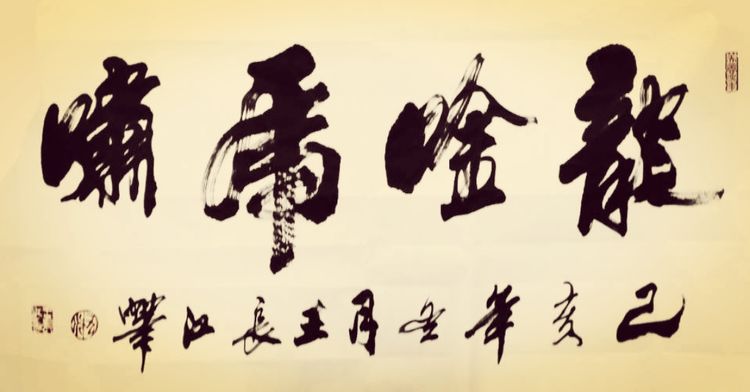 龍唫虎嘯
己亥年冬月王長江